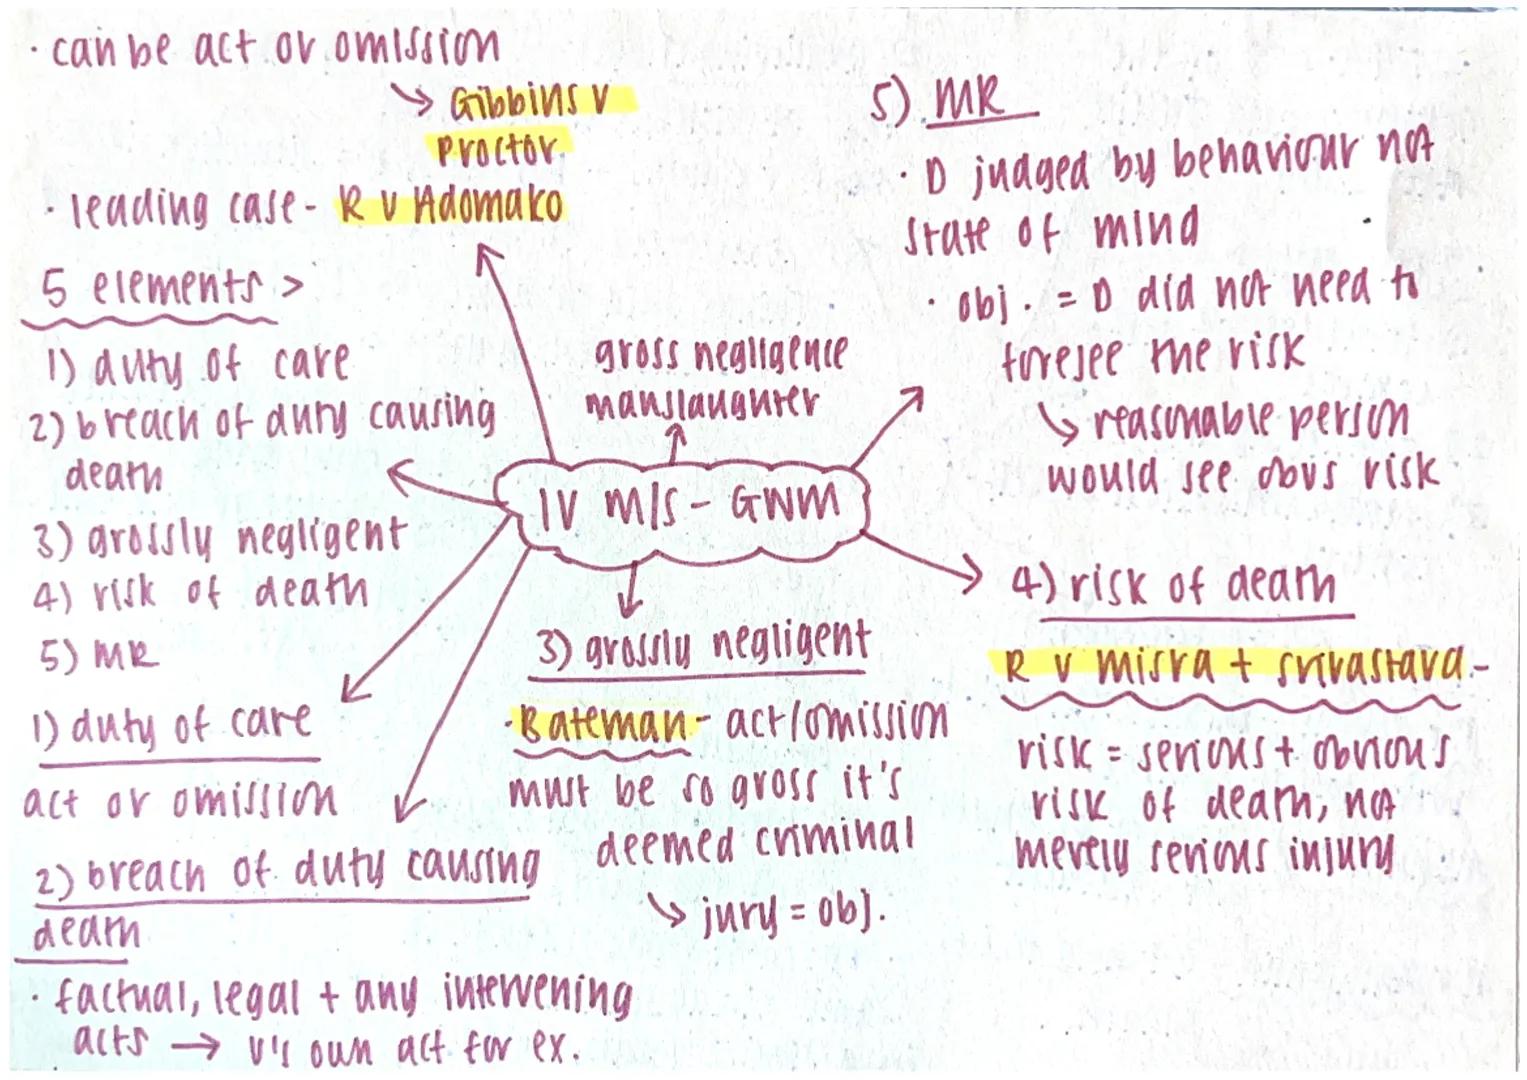 · can be act or omission
↳ Gibbins v
Proctor
· leading case - R v Adomako
5 elements >
1) duty of care
2) breach of duty causing
death
3) grossly negligent
4) risk of death
5) MR
1) duty of care
act or omission
2) breach of duty causing
death
· factual, legal + any intervening
acts → v's own act for ex.
gross negligence
manslaughter
IV M/S - GNM
3) grossly negligent
· Bateman - act/omission
must be so gross it's
deemed criminal
↳ jury = obj.
5) MR
· D judged by behaviour not
state of mind
· obj. = D did not need to
foresee the risk
↳ reasonable person
would see obvs risk
4) risk of death
R v misra + srivastava -
risk = serious + obvious
risk of death, not
merely serious injury